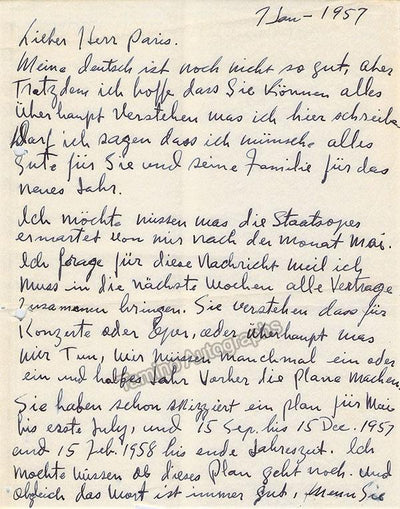 7 Jan - 1957
Lieber Herr Paris.
Meine deutsch ist noch nicht so gut, aber
Tratzdem ich hoffe dass Sie können alles
überhaupt verstehen was ich hier schreibe
Darf ich sagen dass ich wünsche alles
gute für Sie und seine Familie für das
neues Jahr.
Ich möchte wissen was die Staatsoper
erwartet von mir nach der monat Mai.
Ich forage für diese Nachricht weil ich
muss in die nächste Wochen alle Vertrage
zusammen bringen. Sie verstehen dass für
Konzerte oder Oper, oder überhaupt was
wir Tun, wir müssen manchmal ein oder
ein und halbes Jahr Vorher die Plane machen.
Sie haben schon skizziert ein plan für Mai
bis erste July, und 15 Sep. bis 15 Dec. 1957
und 15 Feb. 1958 bis ende Jahreszeit. Ich
mochte wissen ob dieses Plan geht noch. und
obgleich das Wort ist immer gut, Wenn Sie
Tamino Autographs